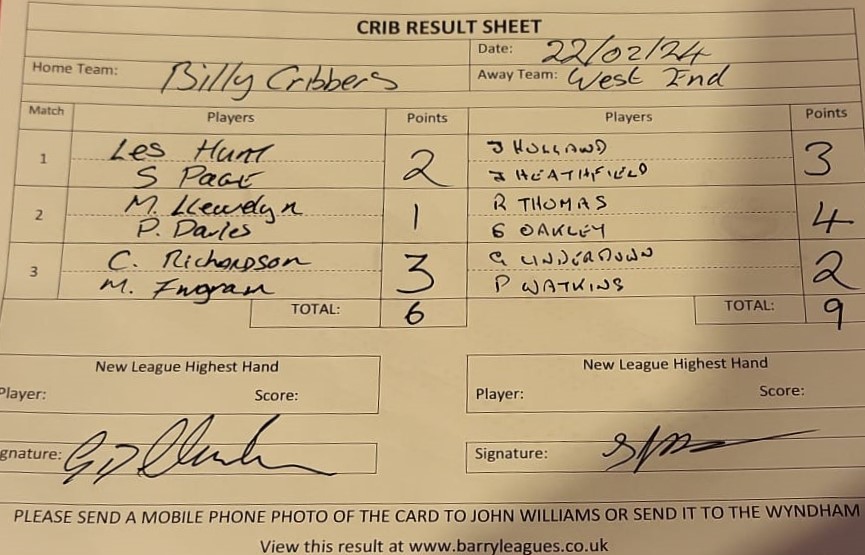 CRIB RESULT SHEET
Date: 22/02/24
Home Team: Billy Cribbers
Away Team: West End
Match Players Points Players Points
1 Les Hunt 2 J HOLLAND 3
S PAGE J HEATHFIELD
2 M. Llewelyn 1 R THOMAS 4
P. Davies G OAKLEY
3 C. Richardson 3 G UNDERDOWN 2
M. Ingram P WATKINS
TOTAL: 6 TOTAL: 9
New League Highest Hand New League Highest Hand
Player: Score: Player: Score:
gnature: Signature:
PLEASE SEND A MOBILE PHONE PHOTO OF THE CARD TO JOHN WILLIAMS OR SEND IT TO THE WYNDHAM
View this result at www.barryleagues.co.uk